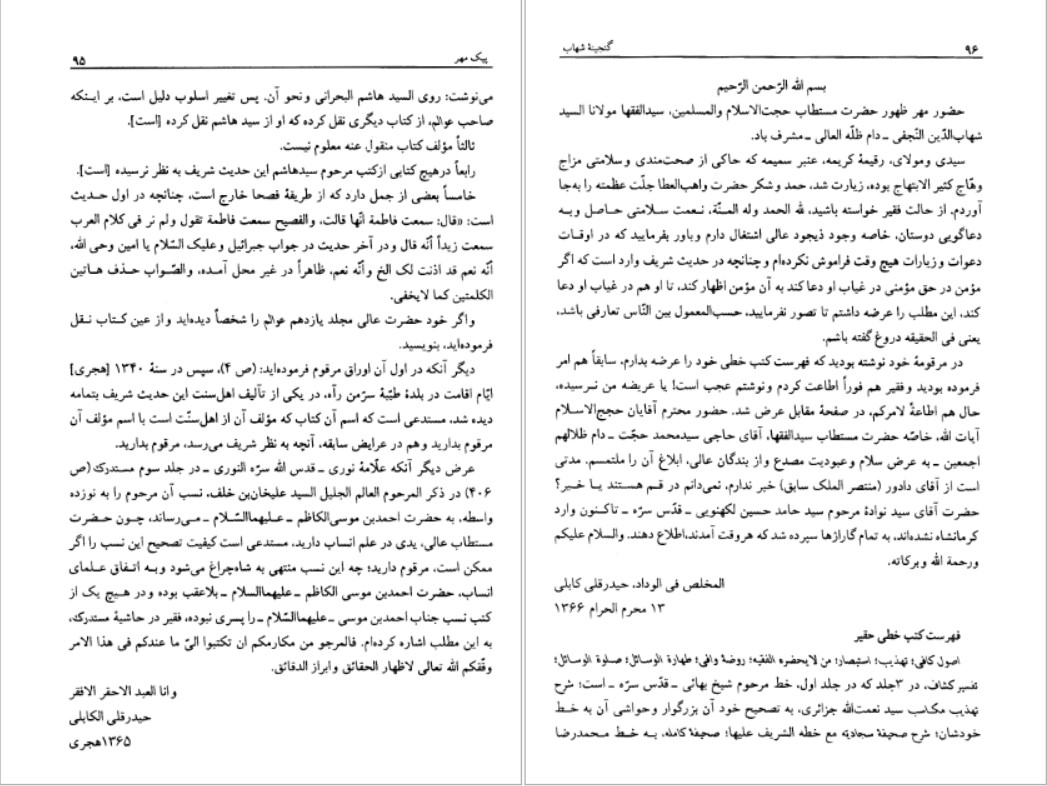 پیک مهر ۹۵
می‌نوشت: روی السید هاشم البحرانی ونحو آن. پس تغییر اسلوب دلیل است، بر اینکه
صاحب عوالم، از کتاب دیگری نقل کرده که او از سید هاشم نقل کرده [است].
ثالثاً مؤلف کتاب منقول عنه معلوم نیست.
رابعاً درهیچ کتابی ازکتب مرحوم سیدهاشم این حدیث شریف به نظر نرسیده [است].
خامساً بعضی از جمل دارد که از طریقهٔ فصحا خارج است، چنانچه در اول حدیث
است: «قال: سمعت فاطمة انّها قالت، والفصیح سمعت فاطمة تقول ولم نر فی کلام العرب
سمعت زیداً أنّه قال و در آخر حدیث در جواب جبرائیل وعلیک السّلام یا امین وحی الله،
أنّه نعم قد اذنت لک الخ وأنّه نعم، ظاهراً در غیر محل آمـده، والصّواب حـذف هـاتین
الکلمتین کما لایخفی.
واگر خود حضرت عالی مجلد یازدهم عوالم را شخصاً دیده‌اید و از عین کتاب نـقل
فرموده‌اید، بنویسید.
دیگر آنکه در اول آن اوراق مرقوم فرموده‌اید: (ص ۴)، سپس در سنهٔ ۱۳۴۰ [هجری]
ایّام اقامت در بلدهٔ طیّبهٔ سرّمن رآه، در یکی از تألیف اهل‌سنت این حدیث شریف بتمامه
دیده شد. مستدعی است که اسم آن کتاب که مؤلف آن از اهل‌سنّت است با اسم مؤلف آن
مرقوم بدارید و هم در عرایض سابقه، آنچه به نظر شریف می‌رسد، مرقوم بدارید.
عرض دیگر آنکه علّامهٔ نوری ـ قدس الله سرّه النوری ـ در جلد سوم مستدرک (ص
۴۰۶) در ذکر المرحوم العالم الجلیل السید علیخان‌بن خلف، نسب آن مرحوم را به نوزده
واسطه، به حضرت احمدبن موسی‌الکاظم ـ علـیهماالسّلام ـ مـی‌رساند، چـون حـضرت
مستطاب عالی، یدی در علم انساب دارید، مستدعی است کیفیت تصحیح این نسب را اگر
ممکن است، مرقوم دارید؛ چه این نسب منتهی به شاه‌چراغ می‌شود وبـه اتـفاق عـلمای
انساب، حضرت احمدبن موسی الکاظم ـ علیهماالسلام ـ بلاعقب بوده و در هـیچ یک از
کتب نسب جناب احمدبن موسی ـ علیهماالسّلام ـ را پسری نبوده، فقیر در حاشیهٔ مستدرک،
به این مطلب اشاره کرده‌ام. فالمرجو من مکارمکم ان تکتبوا الیّ ما عندکم فی هذا الامر
وفّقکم الله تعالی لاظهار الحقائق وابراز الدقائق.
وانا العبد الاحقر الافقر
حیدرقلی الکابلی
۱۳۶۵هجری
۹۶ گنجینهٔ شهاب
بسم الله الرّحمن الرّحیم
حضور مهر ظهور حضرت مستطاب حجت‌الاسلام والمسلمین، سیدالفقها مولانا السید
شهاب‌الدّین النّجفی ـ دام ظلّه العالی ـ مشرف باد.
سیدی ومولای، رقیمهٔ کریمه، عنبر سمیمه که حاکی از صحت‌مندی و سلامتی مزاج
وهّاج کثیر الابتهاج بوده، زیارت شد، حمد و شکر حضرت واهب‌العطا جلّت عظمته را به‌جا
آوردم. از حالت فقیر خواسته باشید، لله الحمد وله المـنّة، نـعمت سـلامتی حـاصل وبـه
دعاگویی دوستان، خاصه وجود ذیجود عالی اشتغال دارم وباور بفرمایید که در اوقـات
دعوات و زیارات هیچ وقت فراموش نکرده‌ام و چنانچه در حدیث شریف وارد است که اگر
مؤمن در حق مؤمنی در غیاب او دعا کند به آن مؤمن اظهار کند، تا او هم در غیاب او دعا
کند، این مطلب را عرضه داشتم تا تصور نفرمایید، حسب‌المعمول بین النّاس تعارفی باشد،
یعنی فی الحقیقه دروغ گفته باشم.
در مرقومهٔ خود نوشته بودید که فهرست کتب خطی خود را عرضه بدارم، سابقاً هم امر
فرموده بودید وفقیر هم فوراً اطاعت کردم و نوشتم عجب است! یا عریضه من نـرسیده،
حال هم اطاعةً لامرکم، در صفحهٔ مقابل عرض شد. حضور محترم آقایان حجج‌الاسـلام
آیات الله، خاصّه حضرت مستطاب سیدالفقها، آقای حاجی سیدمحمد حجّت ـ دام ظلالهم
اجمعین ـ به عرض سلام وعبودیت مصدع و از بندگان عالی، ابلاغ آن را ملتمسم. مدتی
است از آقای دادور (منتصر الملک سابق) خبر ندارم، نمی‌دانم در قـم هسـتند یـا خـبر؟
حضرت آقای سید نوادهٔ مرحوم سید حامد حسین لکهنویی ـ قدّس سرّه ـ تاکـنون وارد
کرمانشاه نشده‌اند، به تمام گاراژها سپرده شد که هروقت آمدند،اطلاع دهند. والسلام علیکم
ورحمة الله وبرکاته.
المخلص فی الوداد، حیدرقلی کابلی
۱۳ محرم الحرام ۱۳۶۶
فهرست کتب خطی حقیر
اصول کافی؛ تهذیب؛ استبصار؛ من لایحضره الفقیه؛ روضهٔ وافی؛ طهارة الوسائل؛ صلوة الوسائل؛
تفسیر کشاف، در ۳جلد که در جلد اول، خط مرحوم شیخ بهائی ـ قدّس سرّه ـ است؛ شرح
تهذیب مکاسب سید نعمت‌الله جزائری، به تصحیح خود آن بزرگوار وحواشی آن به خـط
خودشان؛ شرح صحیفهٔ سجادیه مع خطه الشریف علیها؛ صحیفهٔ کامله، بـه خـط مـحمدرضا